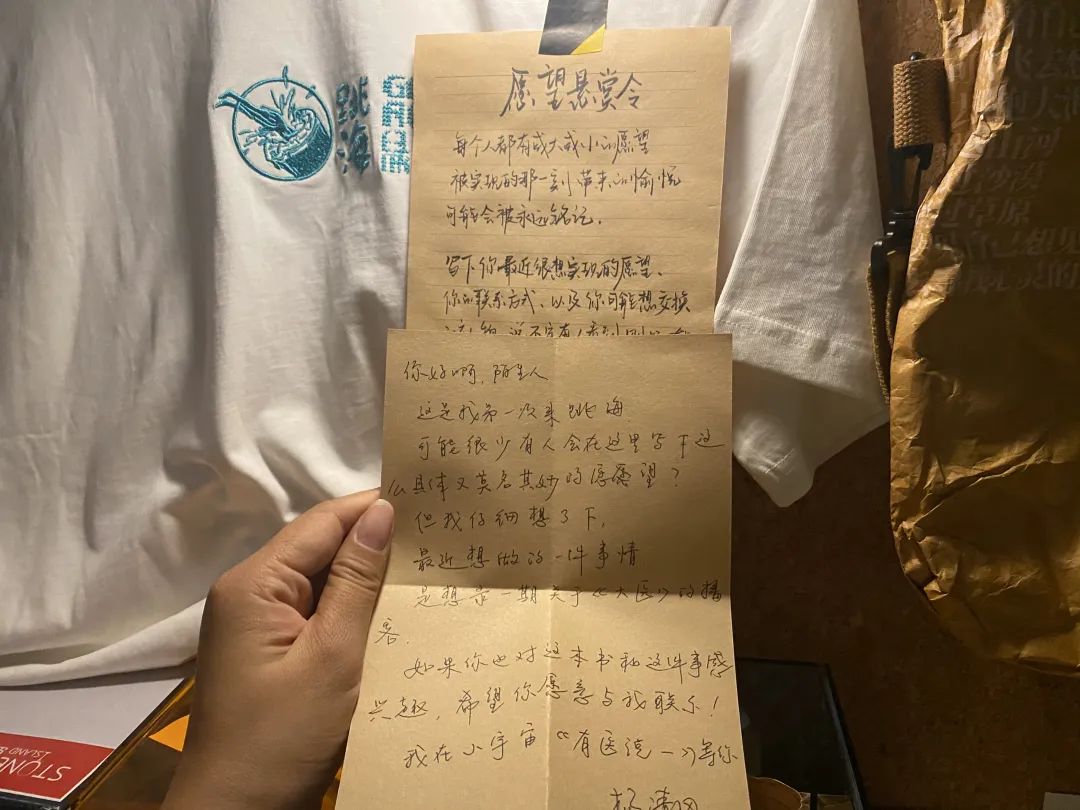 愿望悬赏令
每个人都有或大或小的愿望
被实现的那一刻带来的愉悦
可能会被永远铭记。
写下你最近很想实现的愿望、
你的联系方式、以及你可能想交换
你好啊,陌生人
这是我第一次来跳海
可能很少有人会在这里写下这
么具体又莫名其妙的愿望?
但我仔细想了下,
最近想做的一件事情
是想录一期关于《大医》的播
客.
如果你也对这本书和这件事感
兴趣,希望你愿意与我联系!
我在小宇宙《有医说一》等你
跳海
STONE
ISLAND